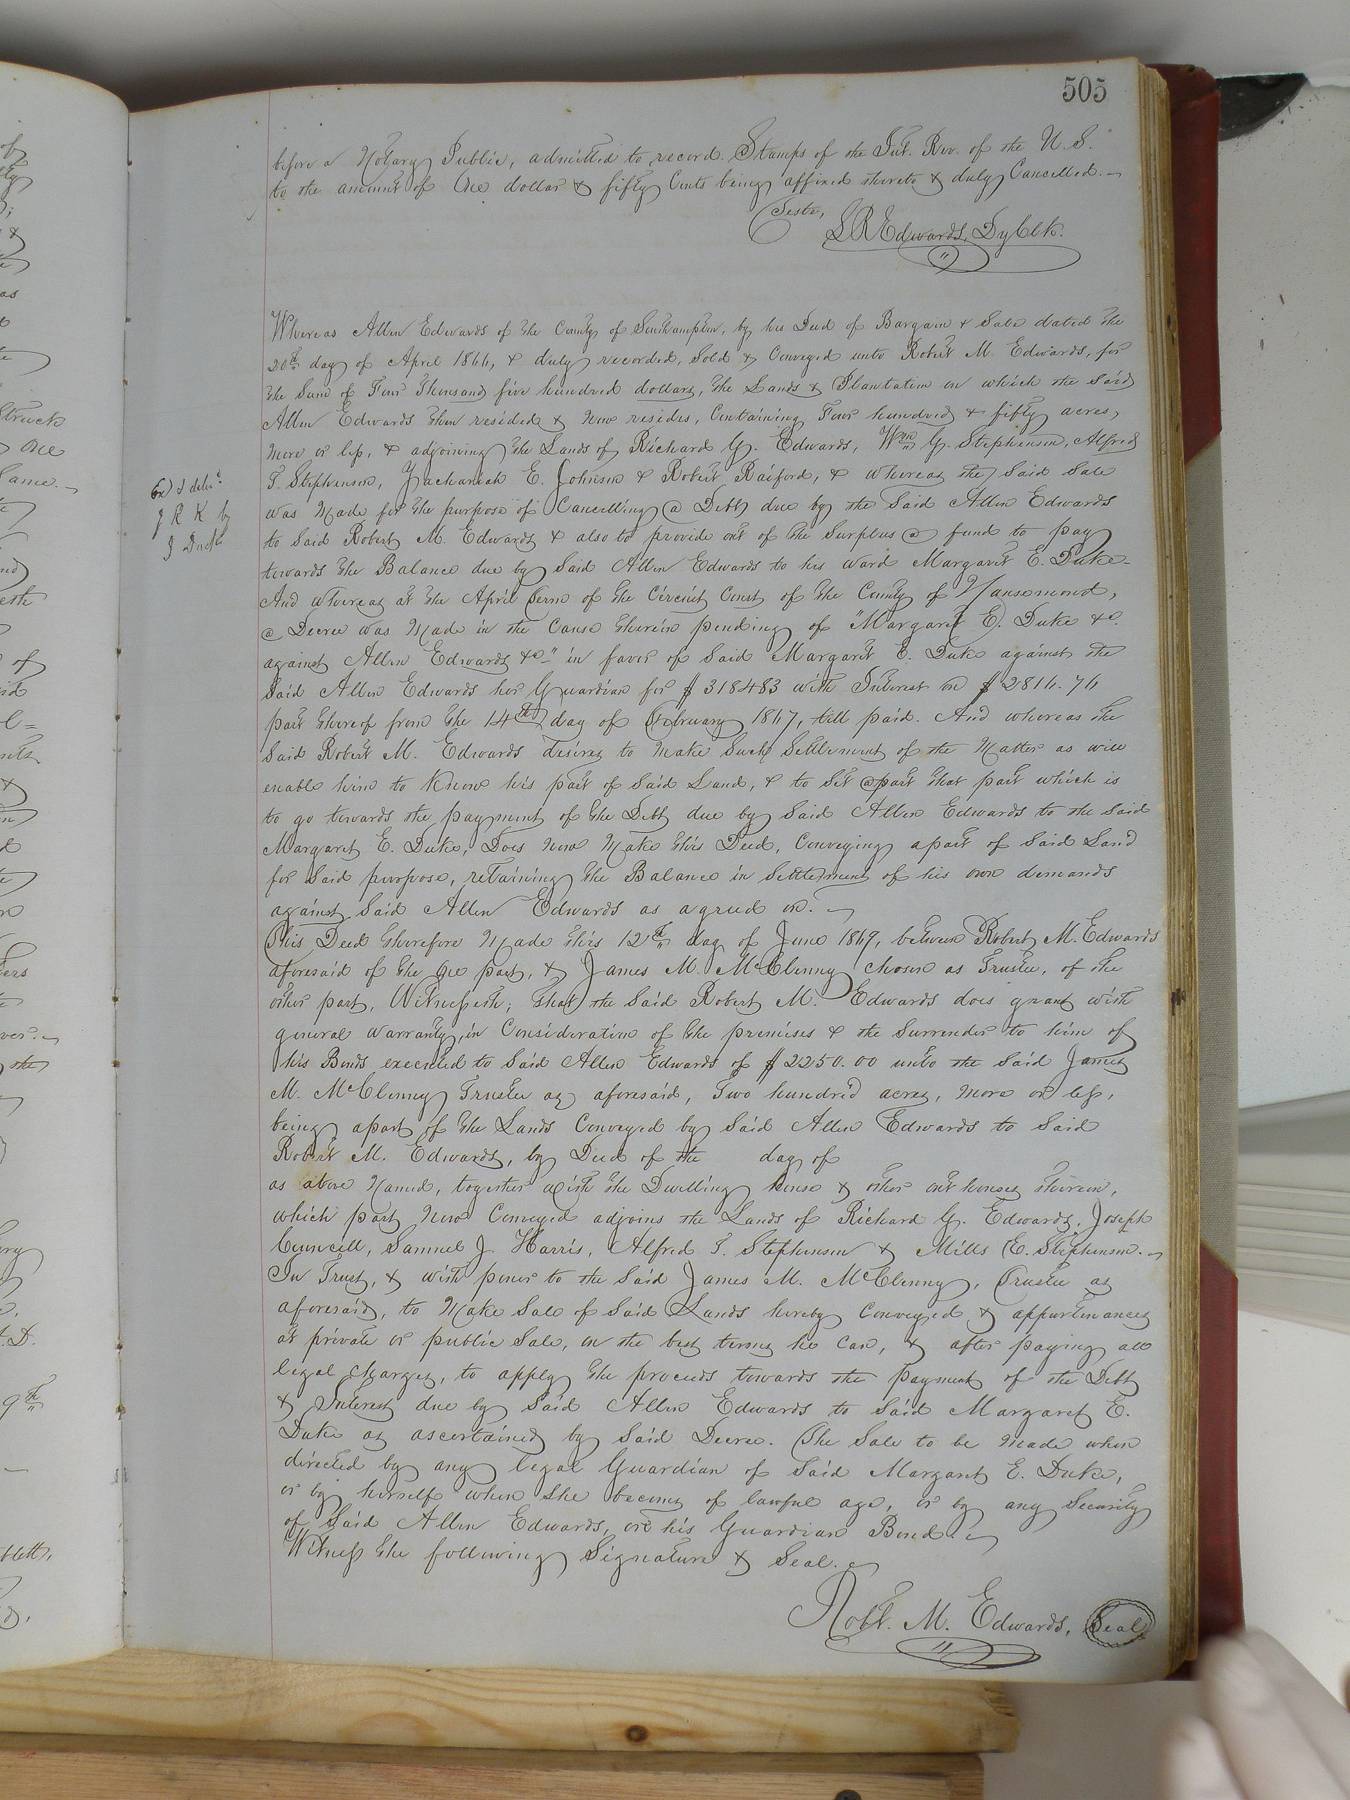 505
before a Notary Public, admitted to record. Stamps of the Int. Rev. of the U. S.
to the amount of One dollar & fifty Cents being affixed thereto & duly Cancelled.
Teste,
L R Edwards, Dy Clk.
Whereas Allen Edwards of the County of Southampton, by his Deed of Bargain & Sale dated the
20th day of April 1866, & duly recorded, Sold & Conveyed unto Robert M. Edwards, for
the Sum of Four Thousand five hundred dollars, the Lands & Plantation on which the said
Allen Edwards then resided & now resides, Containing Four hundred & fifty acres,
more or less, & adjoining the Lands of Richard G. Edwards, Wm G. Stephenson, Alfred
T. Stephenson, Zachariah E. Johnson & Robert Raiford, & whereas the Said Sale
was Made for the purpose of Cancelling a Debt due by the Said Allen Edwards
to Said Robert M. Edwards & also to provide out of the Surplus a fund to pay
towards the Balance due by Said Allen Edwards to his Ward Margaret E. Duke
And whereas at the April Term of the Circuit Court of the County of Nansemond,
a Decree was Made in the Cause therein pending of "Margaret E. Duke &c.
against Allen Edwards &c" in favor of Said Margaret E. Duke against the
Said Allen Edwards her Guardian for $ 318483 with Interest on $ 2816.76
part thereof from the 14th day of February 1867, till paid. And whereas the
Said Robert M. Edwards desires to Make Such Settlement of the Matter as will
enable him to Know his part of Said Land, & to Set apart that part which is
to go towards the payment of the Debt due by Said Allen Edwards to the Said
Margaret E. Duke, Does now Make this Deed, Conveying a part of Said Land
for Said purpose, retaining the Balance in Settlement of his own demands
against Said Allen Edwards as agreed on.
This Deed therefore Made this 12th day of June 1869, between Robert M. Edwards
aforesaid of the one part, & James M. McClenny chosen as Trustee, of the
other part, Witnesseth; that the Said Robert M. Edwards does grant with
general warranty, in Consideration of the premises & the Surrender to him of
his Bonds executed to Said Allen Edwards of $ 2250.00 unto the Said James
M. McClenny Trustee as aforesaid, Two hundred acres, more or less,
being a part of the Lands Conveyed by Said Allen Edwards to Said
Robert M. Edwards, by Deed of the day of
as above Named, together with the Dwelling house & other out houses therein,
which part Now Conveyed adjoins the Lands of Richard G. Edwards, Joseph
Councill, Samuel J. Harris, Alfred T. Stephenson & Mills E. Stephenson.
In Trust, & with power to the Said James M. McClenny, Trustee as
aforesaid, to Make Sale of Said Lands hereby Conveyed & appurtenances
at private or public Sale, on the best terms he can, & after paying all
legal charges, to apply the proceeds towards the payment of the Debt
& Interest due by Said Allen Edwards to Said Margaret E.
Duke as ascertained by Said Decree. The Sale to be Made when
directed by any legal Guardian of Said Margaret E. Duke,
or by herself when She becomes of lawful age, or by any Security
of Said Allen Edwards, on his Guardian Bond.
Witness the following Signature & Seal.
Robt. M. Edwards, Seal